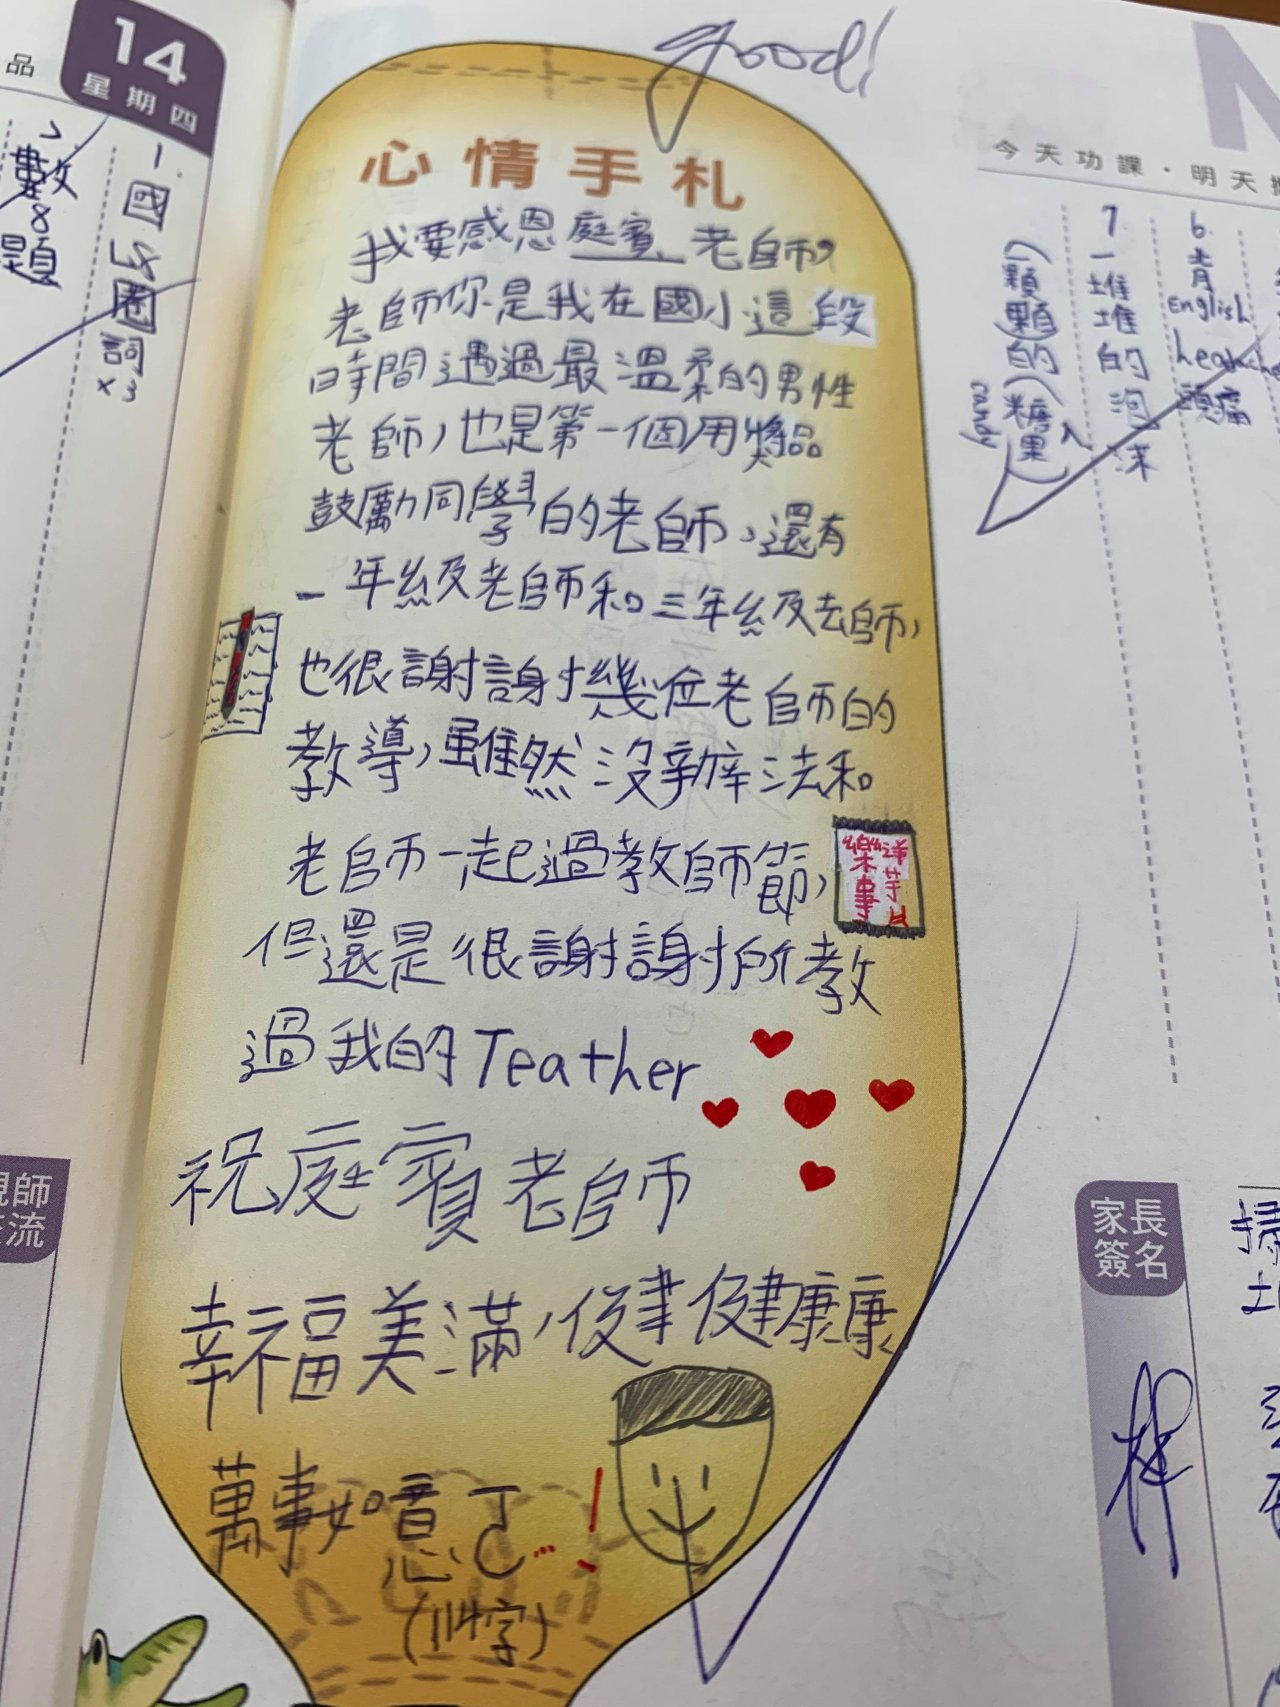 good!
心情手札
我要感恩庭賓老師，
老師你是我在國小這段
時間遇過最溫柔的男性
老師，也是第一個用獎品
鼓勵同學的老師，還有
一年級老師和三年級老師，
也很謝謝幾位老師的
教導，雖然沒辦法和
老師一起過教師節，
但還是很謝謝所教
過我的Teather
祝庭賓老師
幸福美滿，健健康康
萬事如意
(114字)
樂事
洋芋片
品
14
星期四
1.國L8圈詞x3
2.數8題
親師
交流
今天功課・明天
6.背English
頭痛
7.一堆堆的泡沫
(顆顆)的(糖果)
candy
家長
簽名